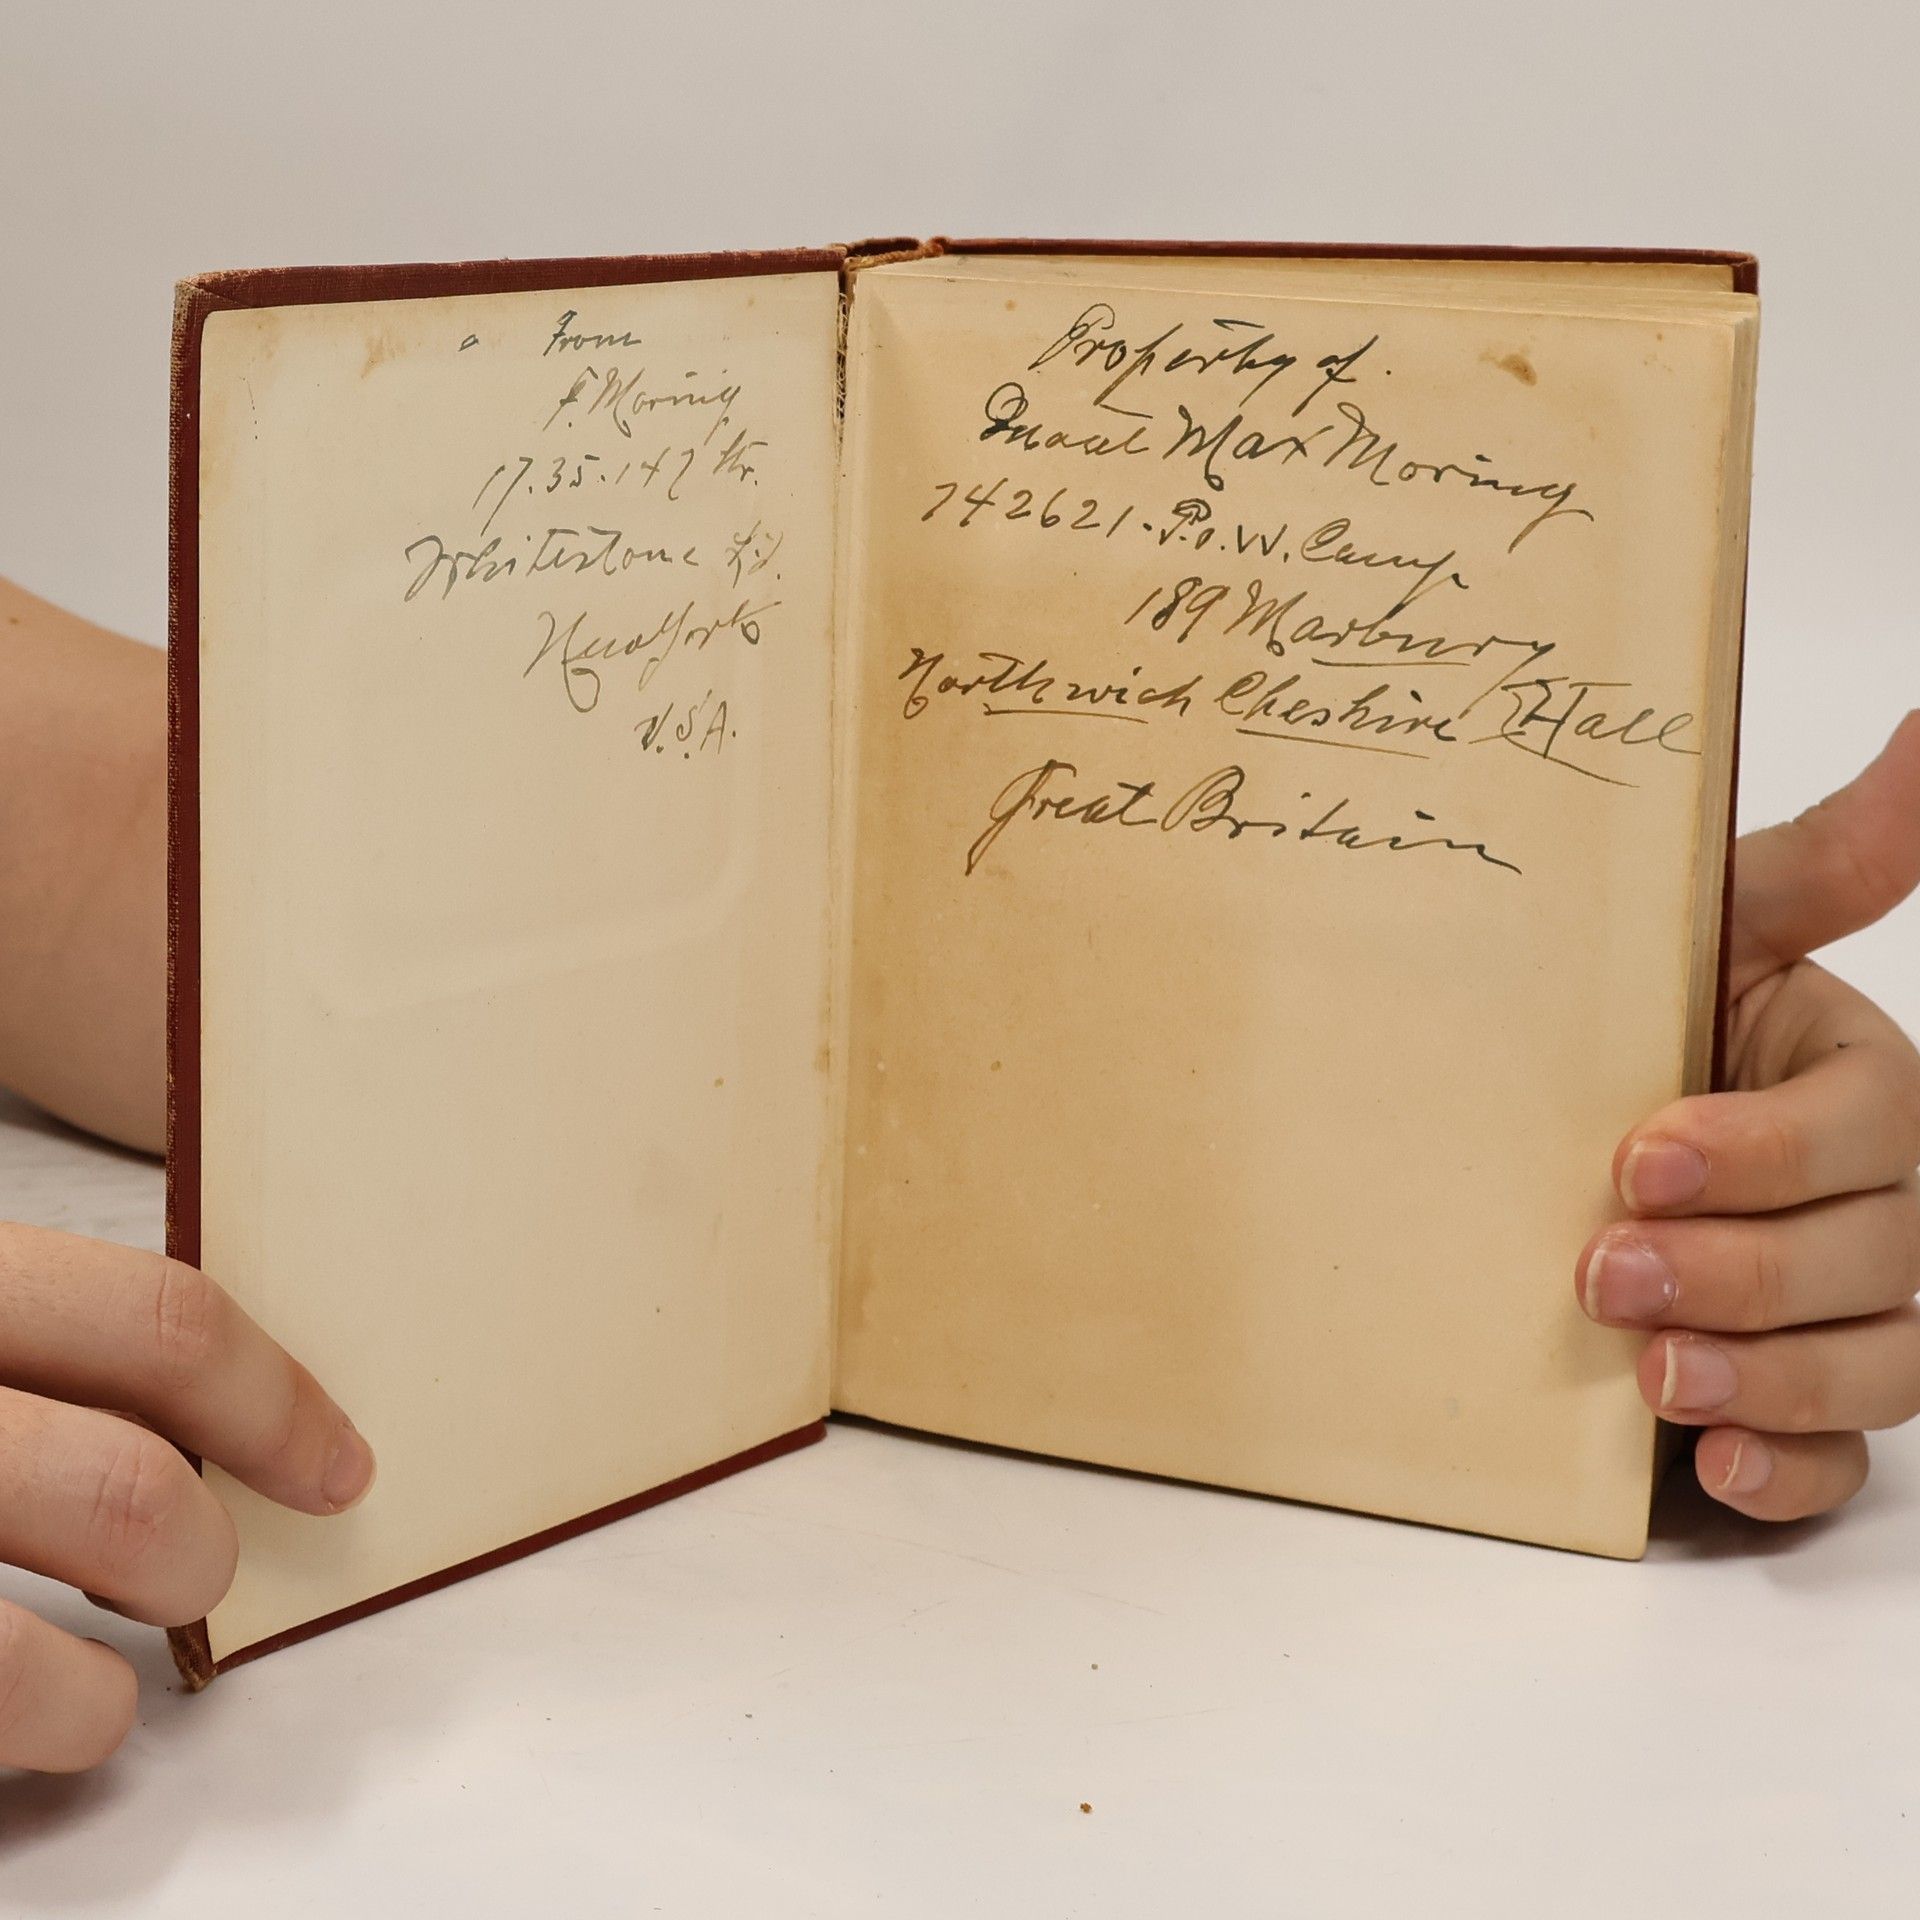 From
F. Moring
17.35.147 Str.
Whitestone L.I.
New York
U.S.A.
Property of.
Max Moring
742621. P.o.W. Camp
189 Marbury
Northwich Cheshire Hall
Great Britain